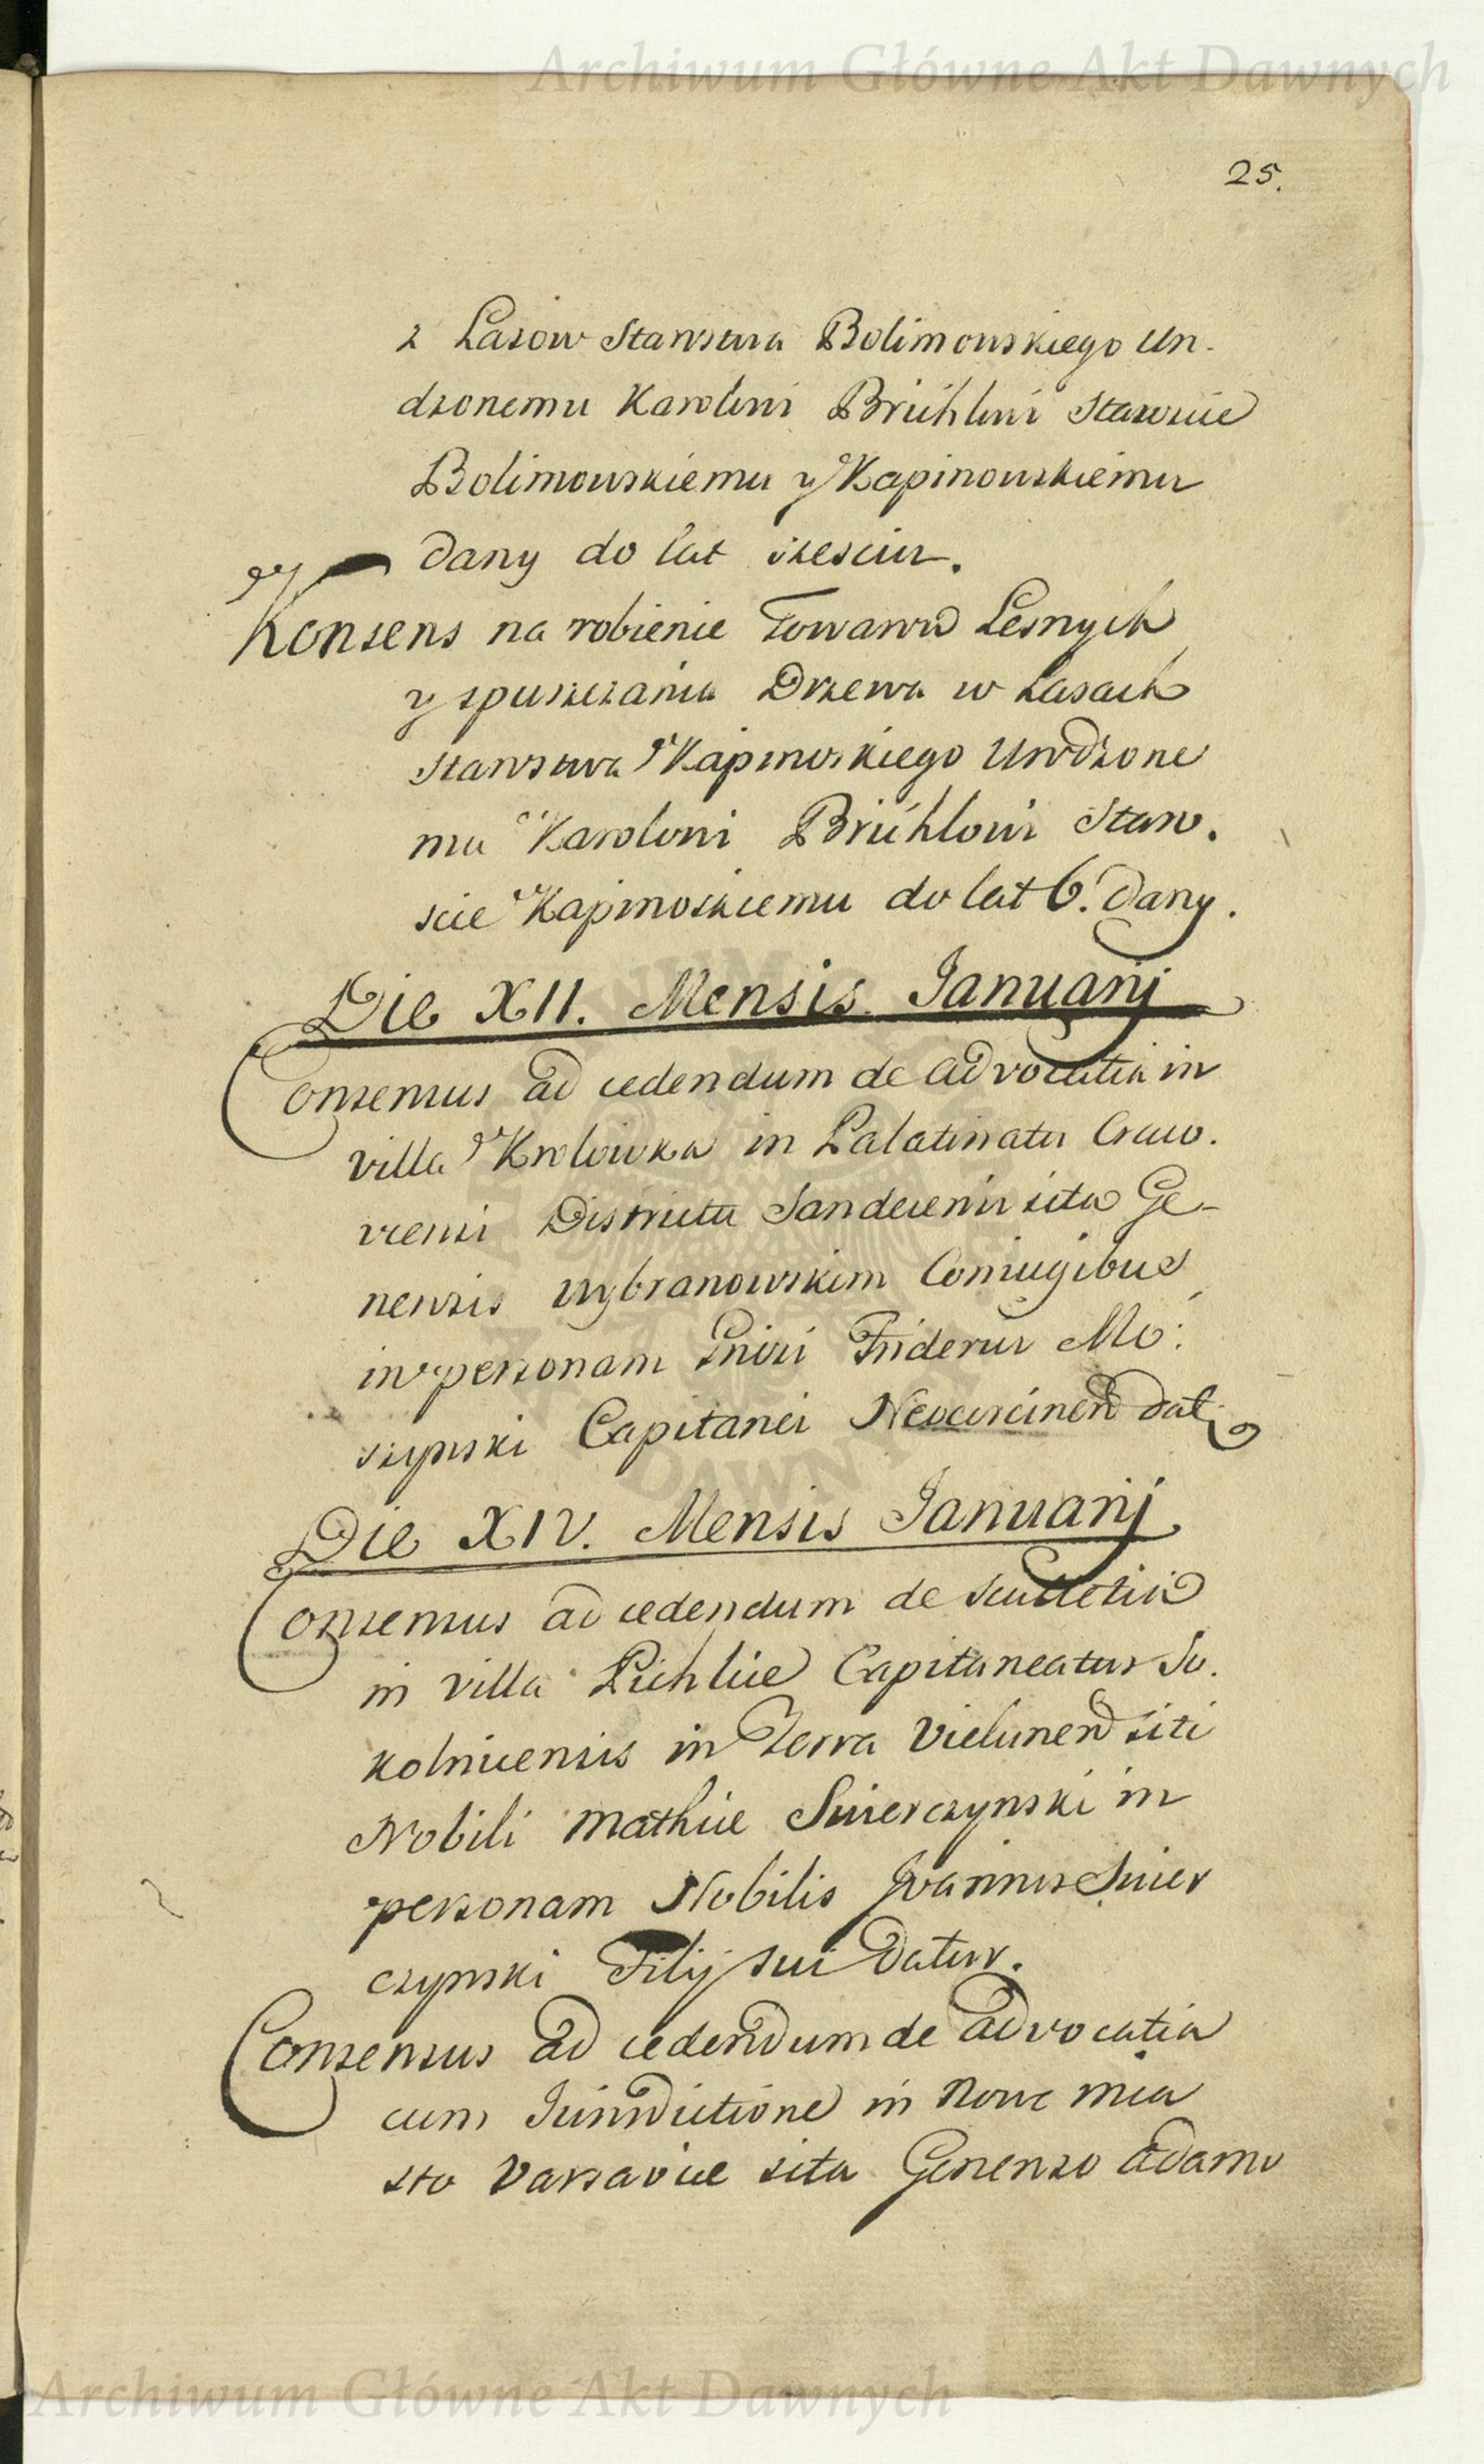 Archiwum Główne Akt Dawnych
25.
z Lasow Starostwa Bolimowskiego Uro-
dzonemu Karolowi Brühlowi Staroscie
Bolimowskiemu y Kapinowskiemu
dany do lat szesciu.
Konsens na robienie Towarow Lesnych
y spuszczania Drzewa w Lasach
Starostwa Kapinoskiego Urodzone
mu Karolowi Brühlowi Staro.
scie Kapinoskiemu do lat 6. dany.
Die XII. Mensis Januarij
Consensus ad cedendum de advocatia in
villa Krolowka in Palatinatu Craco.
viensi Districtu Sandecensi sita Ge-
nerosis Wybranowskim Coniugibus
in personam Gnrosi Friderici Mo:
szynski Capitanei Dat
Die XIV. Mensis Januarij
Consensus ad cedendum de Scultetia
in villa Pichlice Capitaneatus So.
kolnicensis in Terra Vielunen siti
Nobili Mathiæ Swierczynski in
personam Nobilis Joannis Swier
czynski Filij sui datur.
Consensus ad cedendum de advocatia
cum Jurisdictione in Nowe mia
sto Varsaviæ sita Generoso Adamo
Archiwum Główne Akt Dawnych